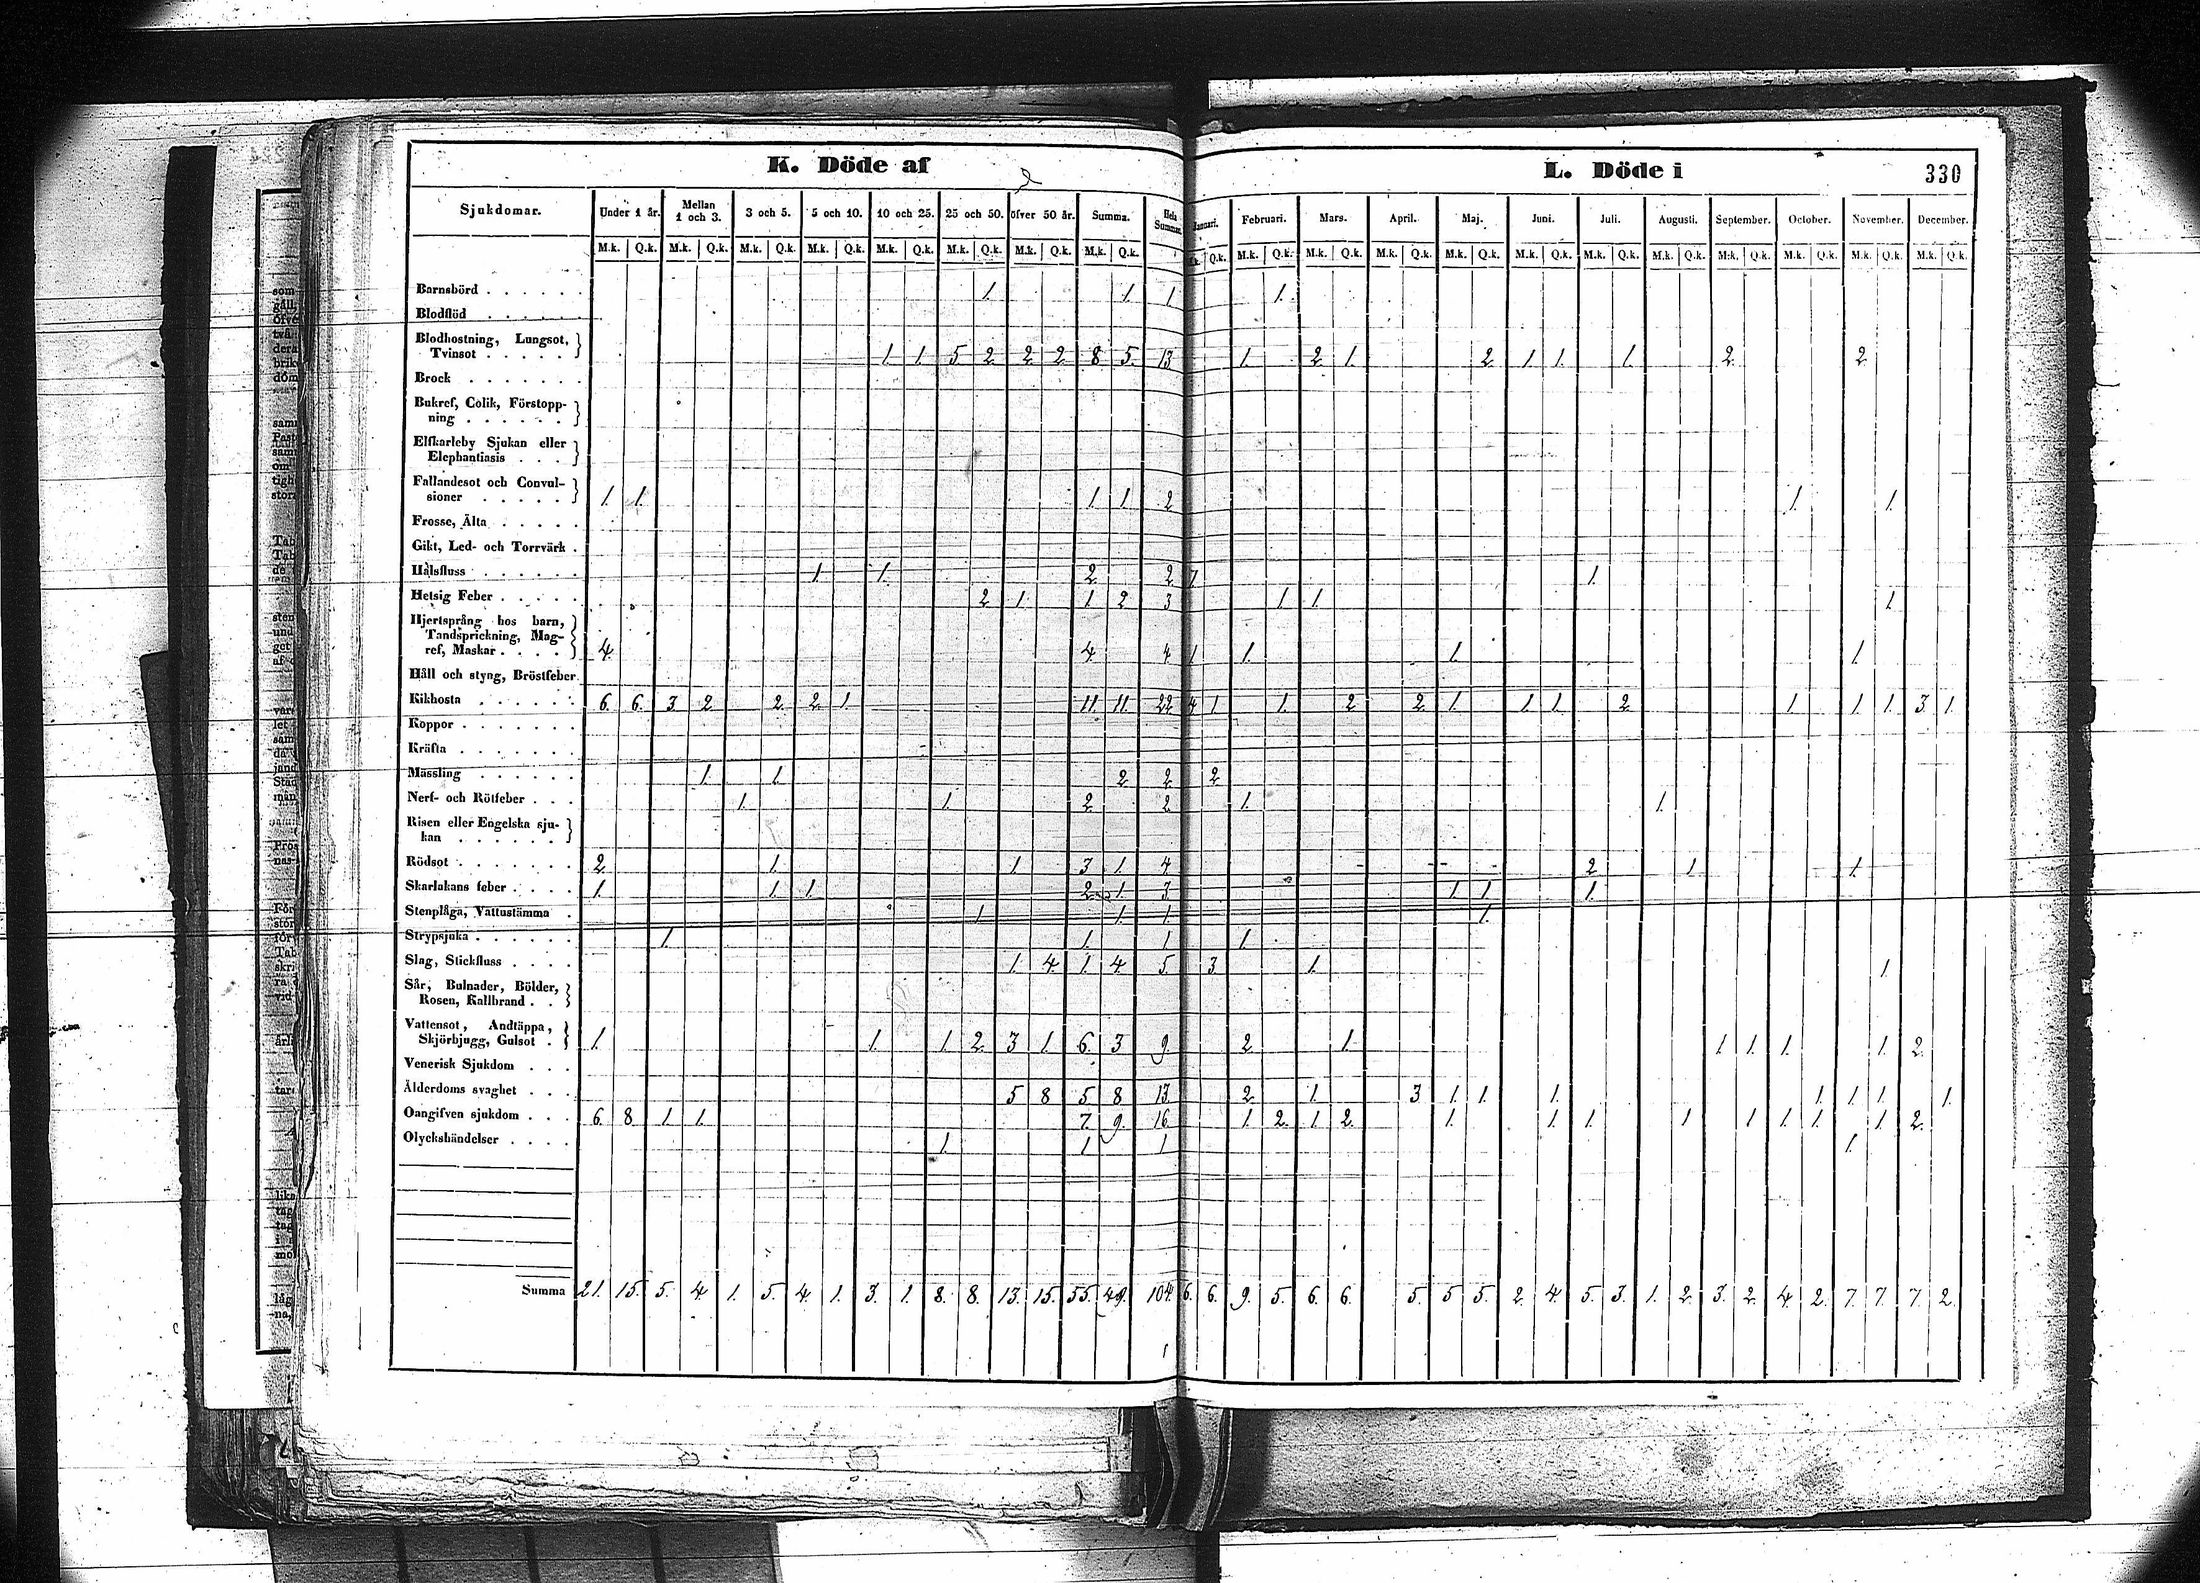 K. Döde af
L. Döde i
330
Sjukdomar. Under 1 år. Mellan 1 och 3. 3 och 5. 5 och 10. 10 och 25. 25 och 50. öfver 50 år. Summa. Hela Summan. Januari. Februari. Mars. April. Maj. Juni. Juli. Augusti. September. October. November. December.
M.k. Q.k. M.k. Q.k. M.k. Q.k. M.k. Q.k. M.k. Q.k. M.k. Q.k. M.k. Q.k. M.k. Q.k. Q.k. M.k. Q.k. M.k. Q.k. M.k. Q.k. M.k. Q.k. M.k. Q.k. M.k. Q.k. M.k. Q.k. M.k. Q.k. M.k. Q.k. M.k. Q.k. M.k. Q.k.
Barnsbörd . . . . . . 1. 1. 1 1.
Blodflöd . . . . .
Blodhostning, Lungsot,
Tvinsot . . . . . 1. 1. 5. 2. 2. 2. 8. 5. 13. 1. 2. 1. 2. 1. 1. 1. 2. 2.
Brock . . . . . . .
Bukref, Colik, Förstopp-
ning . . . . . .
Elfkarleby Sjukan eller
Elephantiasis . . .
Fallandesot och Convul-
sioner . . . . . 1. 1. 1. 1. 2. 1. 1.
Frosse, Älta . . . . .
Gikt, Led- och Torrvärk .
Halsfluss . . . . . . 1. 1. 2. 2. 1. 1.
Hetsig Feber . . . . . 2. 1. 1. 2. 3. 1. 1. 1.
Hjertsprång hos barn,
Tandsprickning, Mag-
ref, Maskar . . . . 4. 4. 4 1. 1. 1. 1.
Håll och styng, Bröstfeber
Kikhosta . . . . . . 6. 6. 3. 2. 2. 2. 1. 11. 11. 22. 4. 1. 1. 2. 2. 1. 1. 1. 2. 1. 1. 1. 3. 1.
Koppor . . . . . . .
Kräfta . . . . . . .
Mässling . . . . . . 1. 1. 2. 2. 2.
Nerf- och Rötfeber . . . 1. 1. 2. 2. 1. 1.
Risen eller Engelska sju-
kan . . . . . .
Rödsot . . . . . . . 2. 1. 1. 3. 1. 4. 2. 1. 1.
Skarlakans feber . . . . 1. 1. 1. 2. 1. 3. 1. 1. 1.
Stenplåga, Vattustämma . 1. 1. 1. 1.
Strypsjuka . . . . . . 1. 1. 1 1.
Slag, Stickfluss . . . . 1. 4. 1. 4. 5. 3. 1. 1.
Sår, Bulnader, Bölder,
Rosen, Kallbrand . .
Vattensot, Andtäppa,
Skjörbjugg, Gulsot . 1. 1. 1. 2. 3. 1. 6. 3. 9. 2. 1. 1. 1. 1. 1. 2.
Venerisk Sjukdom . . .
Ålderdoms svaghet . . . 5. 8. 5. 8. 13. 2. 1. 3. 1. 1. 1. 1. 1. 1. 1.
Oangifven sjukdom . . . 6. 8. 1. 1. 7. 9. 16. 1. 2. 1. 2. 1. 1. 1. 1. 1. 1. 1. 1. 2.
Olyckshändelser . . . . 1. 1. 1 1.
Summa 21. 15. 5. 4. 1. 5. 4. 1. 3. 1. 8. 8. 13. 15. 55. 49. 104. 6. 6. 9. 5. 6. 6. 5. 5. 5. 2. 4. 5. 3. 1. 2. 3. 2. 4. 2. 7. 7. 7. 2.